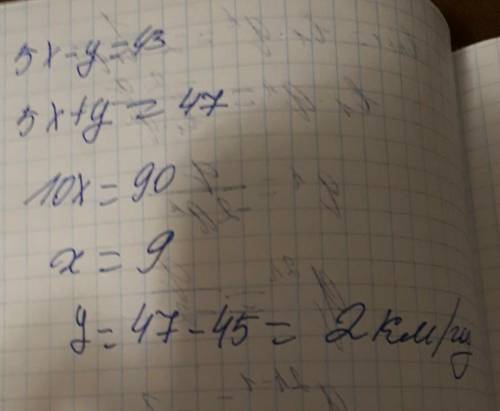 5x-y=43
5x+y=47
10x=90
x=9
y=47-45=2км/ч